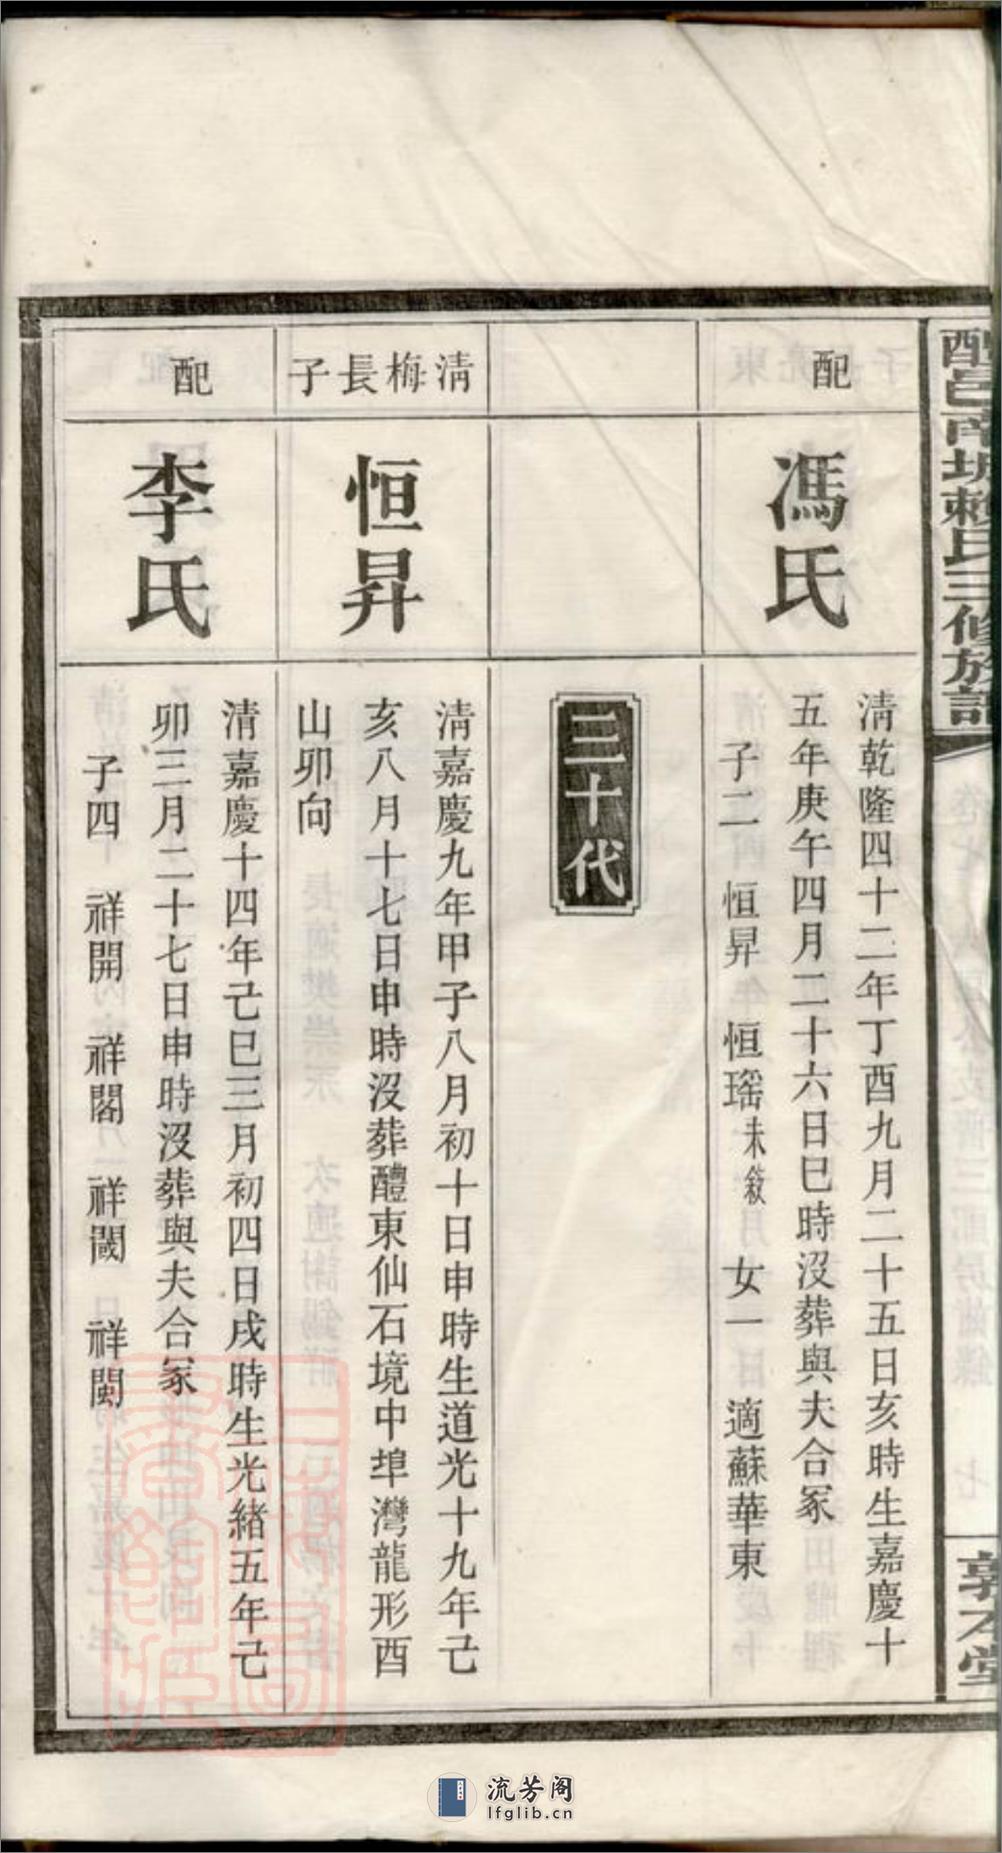 醴邑南城賴氏三修族譜
敦本堂
配
馮氏
清乾隆四十二年丁酉九月二十五日亥時生嘉慶十
五年庚午四月二十六日巳時沒葬與夫合冢
子二 恒昇 恒瑤未敘 女一 適蘇華東
三十代
清梅長子
恒昇
清嘉慶九年甲子八月初十日申時生道光十九年己
亥八月十七日申時沒葬醴東仙石境中埠灣龍形酉
山卯向
配
李氏
清嘉慶十四年己巳三月初四日戌時生光緒五年己
卯三月二十七日申時沒葬與夫合冢
子四 祥開 祥閣 祥閾 祥閩
流芳阁
lfglib.cn